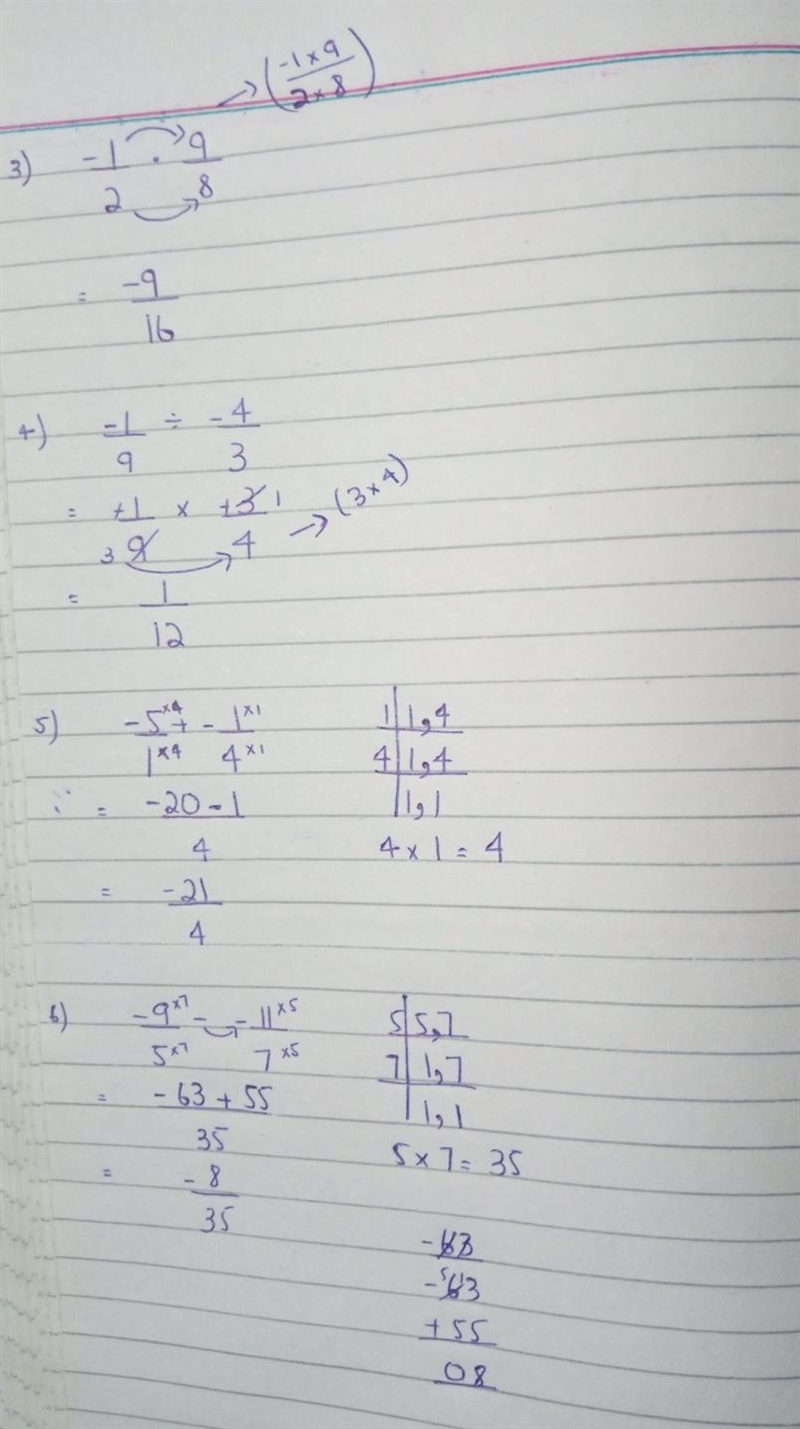 → (-1×9/2×8)
3) -1/2 · 9/8
= -9/16
4) -1/9 ÷ -4/3
= +1/9 3 × +3/4 1 → (3×4)
= 1/12
5) -5×4/1×4 + -1×1/4×1
1 | 1,4
4 | 1,4
1,1
4 × 1 = 4
∵ = -20-1/4
= -21/4
6) -9×7/5×7 - -11×5/7×5
5 | 5,7
7 | 1,7
1,1
5 × 7 = 35
= -63+55/35
= -8/35
-63
-5 63
+55
08